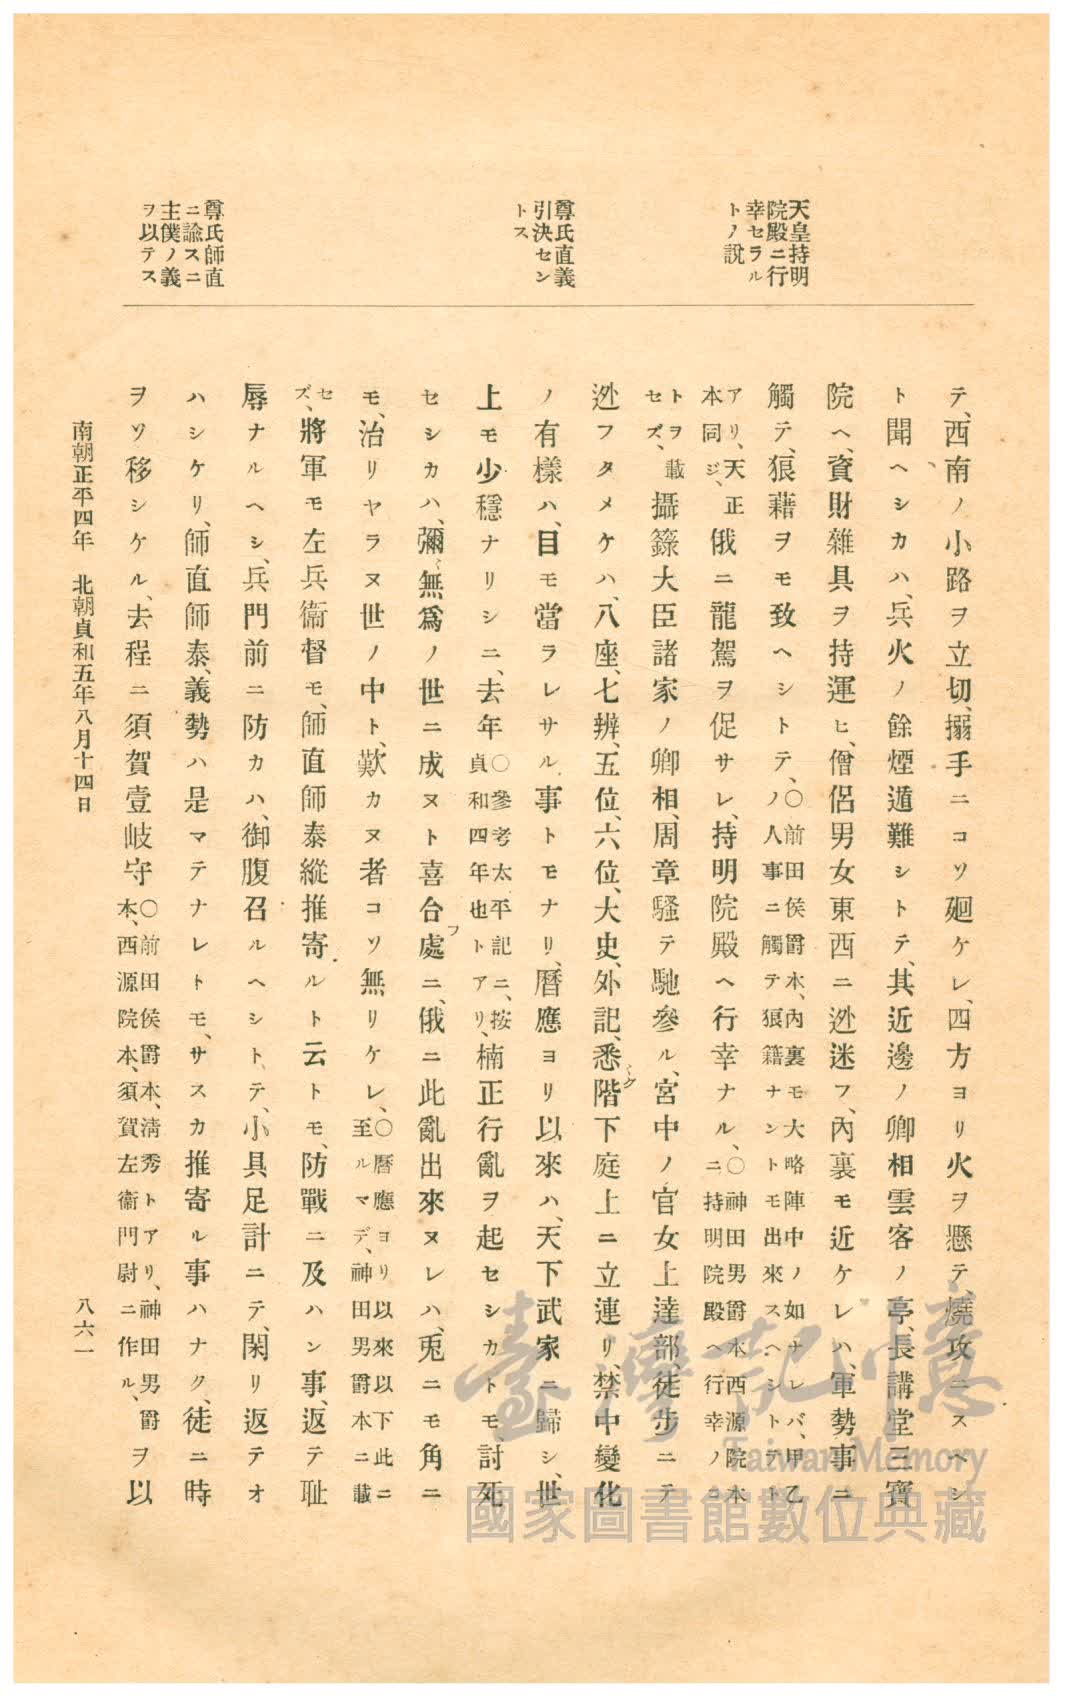 天皇持明
院殿ニ行
幸セラル
トノ說
尊氏直義
引決セン
トス
尊氏師直
ニ諭スニ
主僕ノ義
ヲ以テス
テ、西南ノ小路ヲ立切、搦手ニコソ廻ケレ、四方ヨリ火ヲ懸テ、燒攻ニスヘシ
ト聞ヘシカハ、兵火ノ餘煙遁難シトテ、其近邊ノ卿相雲客ノ亭、長講堂三寶
院ヘ、資財雜具ヲ持運ヒ、僧侶男女東西ニ迯迷フ、內裏モ近ケレハ、軍勢事ニ
觸テ、狼藉ヲモ致ヘシトテ、〇前田侯爵本、內裏モ大略陣中ノ如ナレバ、甲乙ノ人事ニ觸テ狼籍ナントモ出來スヘシトテト
アリ、天正本同ジ、俄ニ龍駕ヲ促サレ、持明院殿ヘ行幸ナル、〇神田男爵本西源院本ニ持明院殿ヘ行幸ノコ
トヲ載セズ、攝籙大臣諸家ノ卿相、周章騷テ馳參ル、宮中ノ官女上達部、徒步ニテ
迯フタメケハ、八座、七辨、五位、六位、大史、外記、悉ク階下庭上ニ立連リ、禁中變化
ノ有樣ハ、目モ當ラレサル事トモナリ、曆應ヨリ以來ハ、天下武家ニ歸シ、世
上モ少穩ナリシニ、去年〇參考太平記ニ、按貞和四年也トアリ、楠正行亂ヲ起セシカトモ、討死
セシカハ、彌無爲ノ世ニ成ヌト喜台フ處ニ、俄ニ此亂出來ヌレハ、兎ニモ角ニ
モ、治リヤラヌ世ノ中ト、歎カヌ者コソ無リケレ、〇曆應ヨリ以來以下此ニ至ルマデ、神田男爵本ニ載
セズ、將軍モ左兵衞督モ、師直師泰縱推寄ルト云トモ、防戰ニ及ハン事、返テ耻
辱ナルヘシ、兵門前ニ防カハ、御腹召ルヘシトテ、小具足計ニテ、閑リ返テオ
ハシケリ、師直師泰、義勢ハ是マテナレトモ、サスカ推寄ル事ハナク、徒ニ時
ヲソ移シケル、去程ニ須賀壹岐守〇前田侯爵本、淸秀トアリ、神田男爵本、西源院本、須賀左衞門尉ニ作ル、ヲ以
南朝正平四年 北朝貞和五年八月十四日
八六一
臺灣記憶
Taiwan Memory
國家圖書館數位典藏